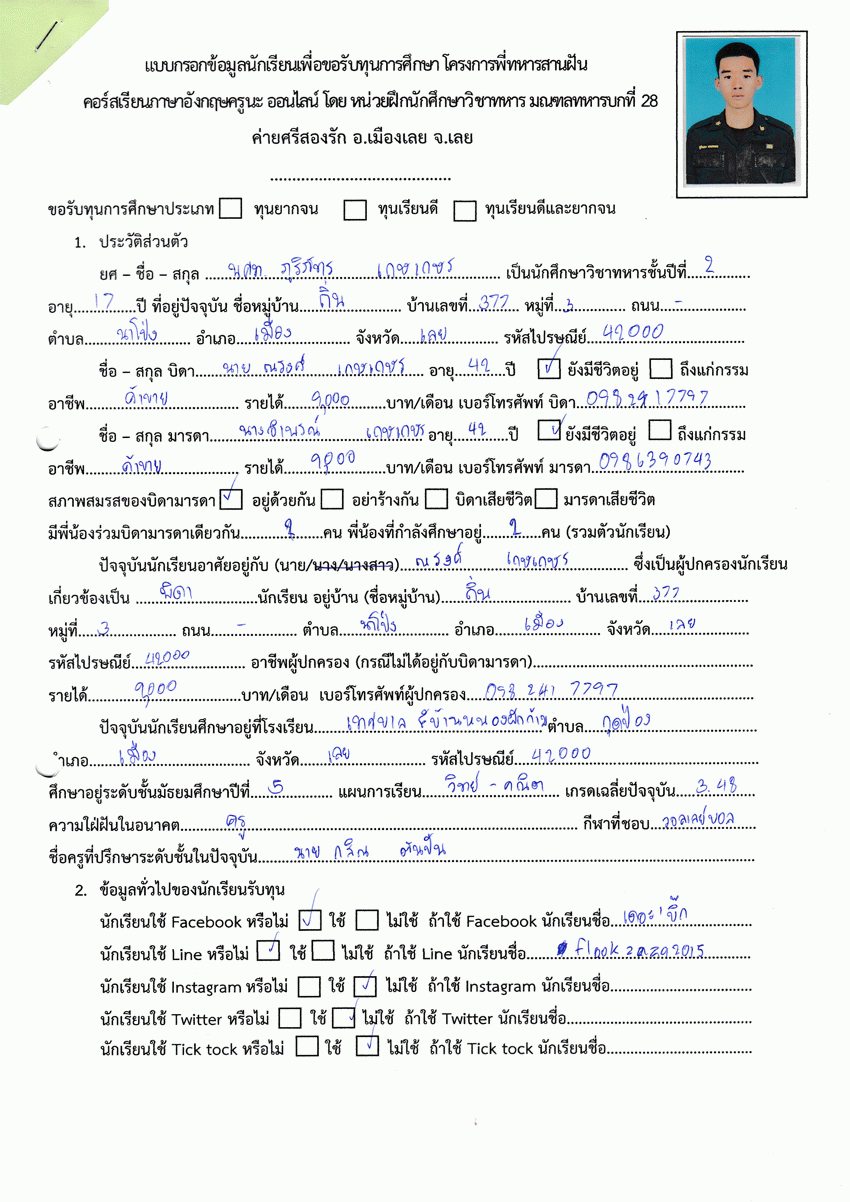 แบบกรอกข้อมูลนักเรียนเพื่อขอรับทุนการศึกษา โครงการพี่ทหารสานฝัน
คอร์สเรียนภาษาอังกฤษครูนะ ออนไลน์ โดย หน่วยฝึกนักศึกษาวิชาทหาร มณฑลทหารบกที่ 28
ค่ายศรีสองรัก อ.เมืองเลย จ.เลย
ขอรับทุนการศึกษาประเภท ทุนยากจน ทุนเรียนดี ทุนเรียนดีและยากจน
1. ประวัติส่วนตัว
ยศ – ชื่อ – สกุล นศท ภูริภัทร เกษเกษร เป็นนักศึกษาวิชาทหารชั้นปีที่ 2
อายุ 17 ปี ที่อยู่ปัจจุบัน ชื่อหมู่บ้าน ถิ่น บ้านเลขที่ 377 หมู่ที่ 3 ถนน -
ตำบล นาโป่ง อำเภอ เมือง จังหวัด เลย รหัสไปรษณีย์ 42000
ชื่อ – สกุล บิดา นาย ณรงค์ เกษเกษร อายุ 42 ปี ยังมีชีวิตอยู่ ถึงแก่กรรม
อาชีพ ค้าขาย รายได้ 9,000 บาท/เดือน เบอร์โทรศัพท์ บิดา 0982417797
ชื่อ – สกุล มารดา เกษเกษร อายุ 42 ปี ยังมีชีวิตอยู่ ถึงแก่กรรม
อาชีพ ค้าขาย รายได้ 9,000 บาท/เดือน เบอร์โทรศัพท์ มารดา 0986390743
สภาพสมรสของบิดามารดา อยู่ด้วยกัน อย่าร้างกัน บิดาเสียชีวิต มารดาเสียชีวิต
มีพี่น้องร่วมบิดามารดาเดียวกัน 2 คน พี่น้องที่กำลังศึกษาอยู่ 2 คน (รวมตัวนักเรียน)
ปัจจุบันนักเรียนอาศัยอยู่กับ (นาย/นาง/นางสาว) ณรงค์ เกษเกษร ซึ่งเป็นผู้ปกครองนักเรียน
เกี่ยวข้องเป็น บิดา นักเรียน อยู่บ้าน (ชื่อหมู่บ้าน) ถิ่น บ้านเลขที่ 377
หมู่ที่ 3 ถนน - ตำบล นาโป่ง อำเภอ เมือง จังหวัด เลย
รหัสไปรษณีย์ 42000 อาชีพผู้ปกครอง (กรณีไม่ได้อยู่กับบิดามารดา)
รายได้ 9,000 บาท/เดือน เบอร์โทรศัพท์ผู้ปกครอง 098 241 7797
ปัจจุบันนักเรียนศึกษาอยู่ที่โรงเรียน เทศบาล 5บ้านหนองผักก้าม ตำบล กุดป่อง
ำเภอ เมือง จังหวัด เลย รหัสไปรษณีย์ 42000
ศึกษาอยู่ระดับชั้นมัธยมศึกษาปีที่ 5 แผนการเรียน วิทย์ - คณิต เกรดเฉลี่ยปัจจุบัน 3.48
ความใฝ่ฝันในอนาคต ครู กีฬาที่ชอบ วอลเลย์บอล
ชื่อครูที่ปรึกษาระดับชั้นในปัจจุบัน นาย
2. ข้อมูลทั่วไปของนักเรียนรับทุน
นักเรียนใช้ Facebook หรือไม่ ใช้ ไม่ใช้ ถ้าใช้ Facebook นักเรียนชื่อ
นักเรียนใช้ Line หรือไม่ ใช้ ไม่ใช้ ถ้าใช้ Line นักเรียนชื่อ flookzaza2015
นักเรียนใช้ Instagram หรือไม่ ใช้ ไม่ใช้ ถ้าใช้ Instagram นักเรียนชื่อ
นักเรียนใช้ Twitter หรือไม่ ใช้ ไม่ใช้ ถ้าใช้ Twitter นักเรียนชื่อ
นักเรียนใช้ Tick tock หรือไม่ ใช้ ไม่ใช้ ถ้าใช้ Tick tock นักเรียนชื่อ